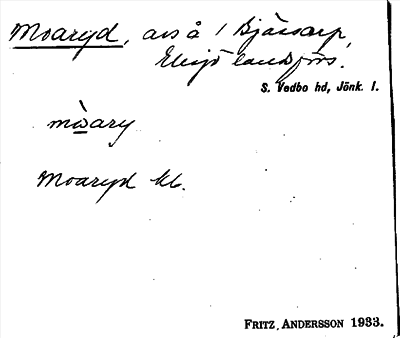 Moaryd, avs å 1 Bjärsarp,
Eksjö landsförs.
S. Vedbo hd, Jönk. l.
mòary
Moaryd kb.
FRITZ ANDERSSON 1933.